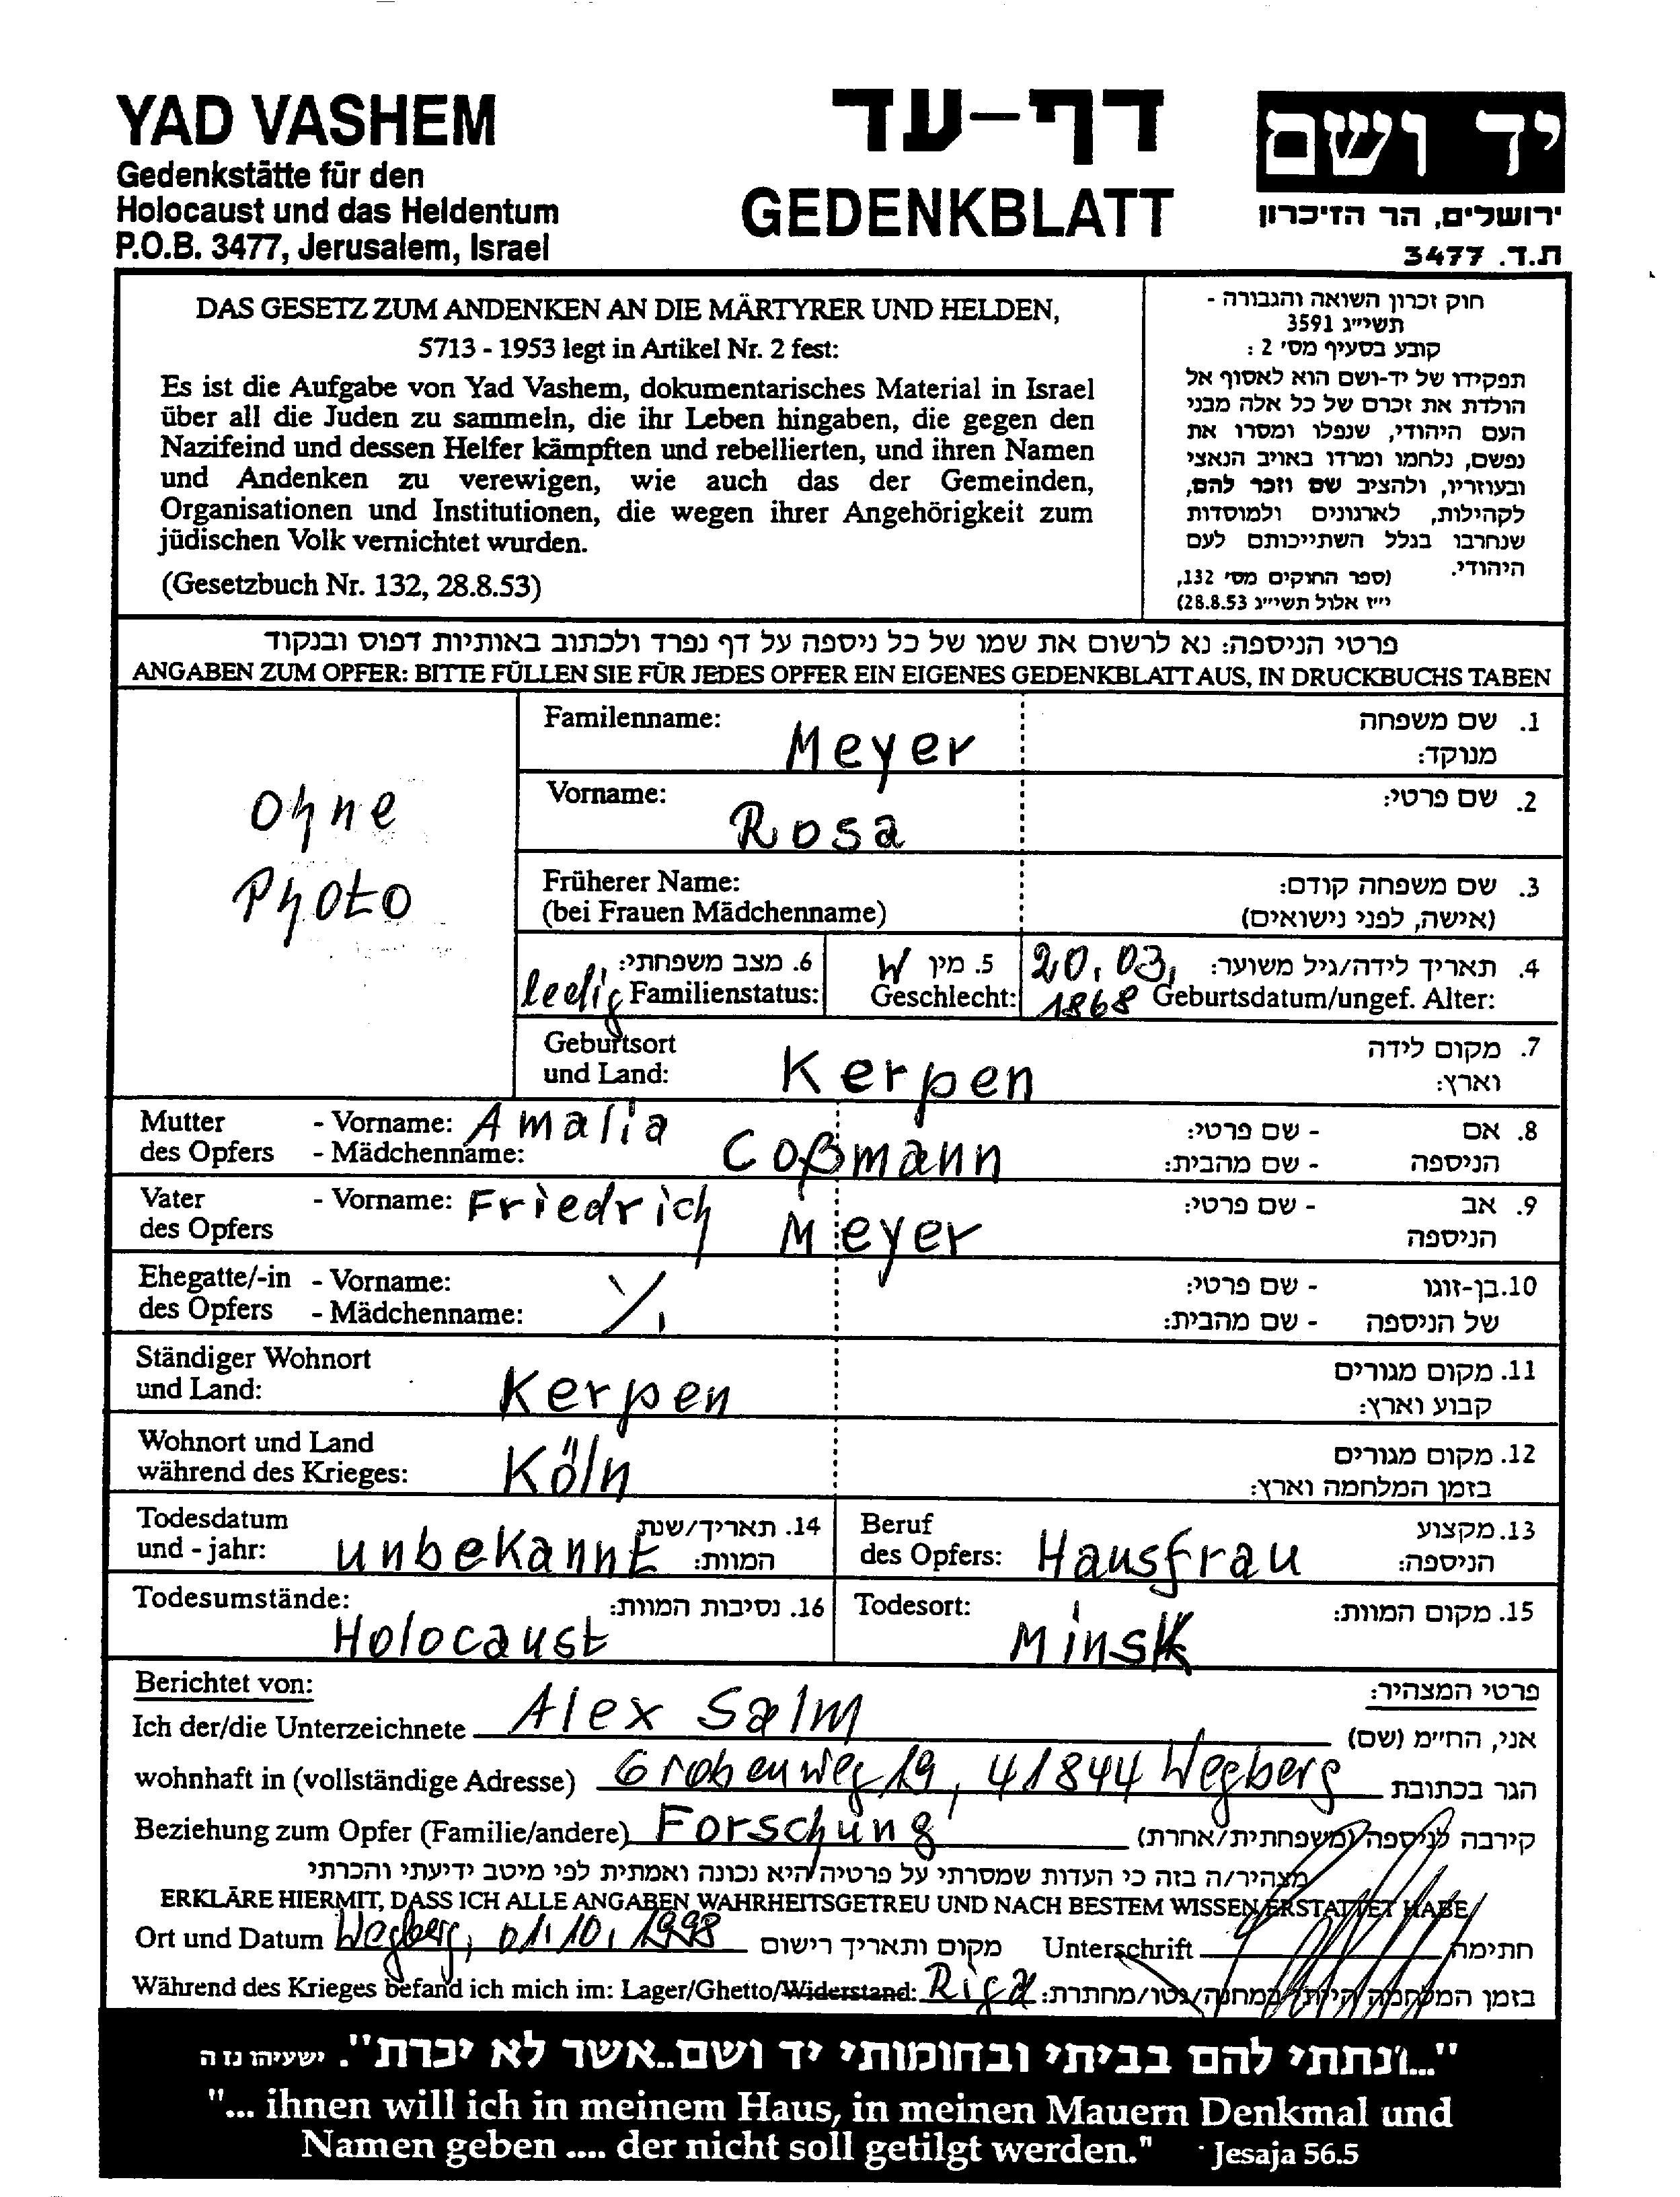 YAD VASHEM
Gedenkstätte für den
Holocaust und das Heldentum
P.O.B. 3477, Jerusalem, Israel
דף-עד
GEDENKBLATT
יד ושם
ירושלים, הר הזיכרון
ת.ד. 3477
DAS GESETZ ZUM ANDENKEN AN DIE MÄRTYRER UND HELDEN,
5713 - 1953 legt in Artikel Nr. 2 fest:
Es ist die Aufgabe von Yad Vashem, dokumentarisches Material in Israel
über all die Juden zu sammeln, die ihr Leben hingaben, die gegen den
Nazifeind und dessen Helfer kämpften und rebellierten, und ihren Namen
und Andenken zu verewigen, wie auch das der Gemeinden,
Organisationen und Institutionen, die wegen ihrer Angehörigkeit zum
jüdischen Volk vernichtet wurden.
(Gesetzbuch Nr. 132, 28.8.53)
חוק זכרון השואה והגבורה -
תשי״ג 3591
קובע בסעיף מס׳ 2 :
תפקידו של יד-ושם הוא לאסוף אל
הולדת את זכרם של כל אלה מבני
העם היהודי, שנפלו ומסרו את
נפשם, נלחמו ומרדו באויב הנאצי
ובעוזריו, ולהציב שם וזכר להם,
לקהילות, לארגונים ולמוסדות
שנחרבו בגלל השתייכותם לעם
היהודי.
(ספר החוקים מס׳ 132,
י״ז אלול תשי״ג 28.8.53)
פרטי הניספה: נא לרשום את שמו של כל ניספה על דף נפרד ולכתוב באותיות דפוס ובנקוד
ANGABEN ZUM OPFER: BITTE FÜLLEN SIE FÜR JEDES OPFER EIN EIGENES GEDENKBLATT AUS, IN DRUCKBUCHS TABEN
Ohne
Photo
Familenname: Meyer 1. שם משפחה
מנוקד:
Vorname: Rosa 2. שם פרטי:
Früherer Name: 3. שם משפחה קודם:
(bei Frauen Mädchenname) (אישה, לפני נישואים)
6. מצב משפחתי: 5. מין W 20.03. 4. תאריך לידה/גיל משוער:
ledig Familienstatus: Geschlecht: 1868 Geburtsdatum/ungef. Alter:
Geburtsort 7. מקום לידה
und Land: Kerpen וארץ:
Mutter - Vorname: Amalia 8. אם - שם פרטי:
des Opfers - Mädchenname: Coßmann הניספה - שם מהבית:
Vater - Vorname: Friedrich 9. אב - שם פרטי:
des Opfers Meyer הניספה
Ehegatte/-in - Vorname: 10. בן-זוגו - שם פרטי:
des Opfers - Mädchenname: של הניספה - שם מהבית:
Ständiger Wohnort 11. מקום מגורים
und Land: Kerpen קבוע וארץ:
Wohnort und Land 12. מקום מגורים
während des Krieges: Köln בזמן המלחמה וארץ:
Todesdatum 14. תאריך/שנת Beruf 13. מקצוע
und - jahr: unbekannt המוות: des Opfers: Hausfrau הניספה:
Todesumstände: 16. נסיבות המוות: Todesort: 15. מקום המוות:
Holocaust Minsk
Berichtet von: פרטי המצהיר:
Ich der/die Unterzeichnete Alex Salm אני, החי״מ (שם)
wohnhaft in (vollständige Adresse) Grabenweg 19, 41844 Wegberg הגר בכתובת
Beziehung zum Opfer (Familie/andere) Forschung קירבה לניספה (משפחתית/אחרת)
מצהיר/ה בזה כי העדות שמסרתי על פרטיה היא נכונה ואמתית לפי מיטב ידיעתי והכרתי
ERKLÄRE HIERMIT, DASS ICH ALLE ANGABEN WAHRHEITSGETREU UND NACH BESTEM WISSEN ERSTATTET HABE
Ort und Datum Wegberg, 01.10.1998 מקום ותאריך רישום Unterschrift חתימה
Während des Krieges befand ich mich im: Lager/Ghetto/Widerstand: Riga בזמן המלחמה הייתי במחנה/גטו/מחתרת:
"...ונתתי להם בביתי ובחומותי יד ושם..אשר לא יכרת". ישעיהו נז ה
"... ihnen will ich in meinem Haus, in meinen Mauern Denkmal und
Namen geben .... der nicht soll getilgt werden." Jesaja 56.5